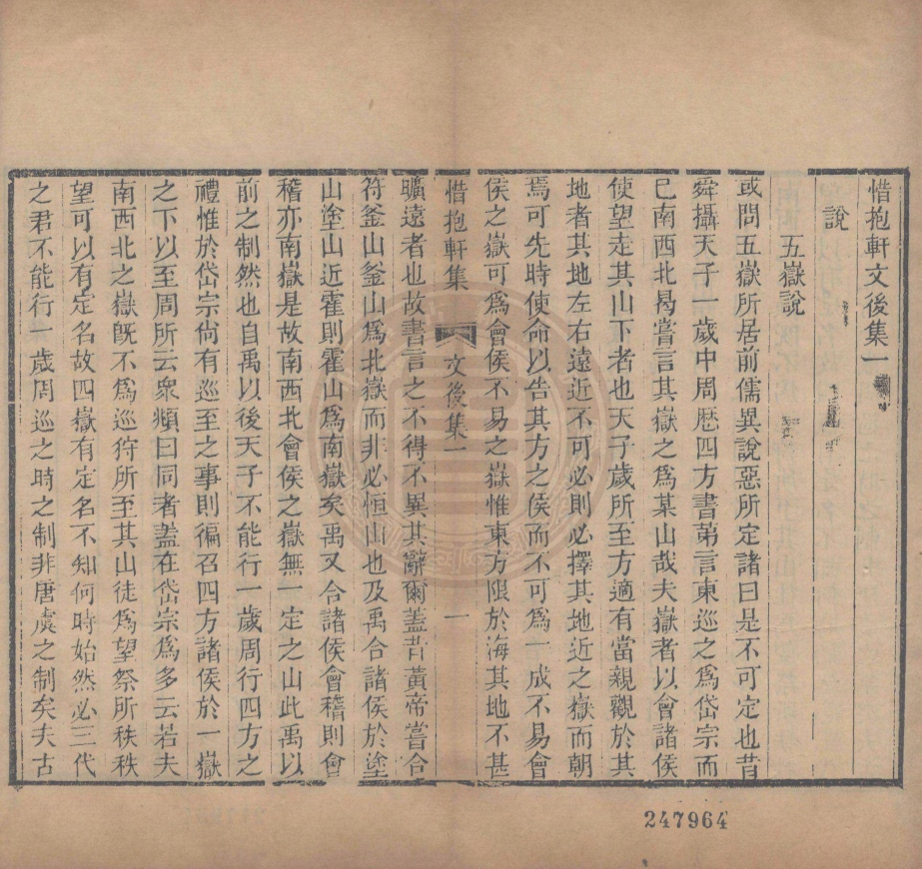 惜抱軒文後集一
說
五嶽說
或問五嶽所居前儒異說惡所定諸曰是不可定也昔
舜攝天子一歲中周厯四方書苐言東巡之爲岱宗而
巳南西北曷嘗言其嶽之爲某山哉夫嶽者以會諸侯
使望走其山下者也天子歲所至方適有當親觀於其
地者其地左右遠近不可必則必擇其地近之嶽而朝
焉可先時使命以告其方之侯而不可爲一成不易會
侯之嶽可爲會侯不易之嶽惟東方限於海其地不甚
惜抱軒集 文後集一 一
曠遠者也故書言之不得不異其辭爾蓋昔黃帝嘗合
符釜山釜山爲北嶽而非必恒山也及禹合諸侯於塗
山塗山近霍則霍山爲南嶽矣禹又合諸侯會稽則會
稽亦南嶽是故南西北會侯之嶽無一定之山此禹以
前之制然也自禹以後天子不能行一歲周行四方之
禮惟於岱宗尙有巡至之事則徧召四方諸侯於一嶽
之下以至周所云衆頫曰同者蓋在岱宗爲多云若夫
南西北之嶽旣不爲巡狩所至其山徒爲望祭所秩秩
望可以有定名故四嶽有定名不知何時始然必三代
之君不能行一歲周巡之時之制非唐虞之制矣夫古
247964